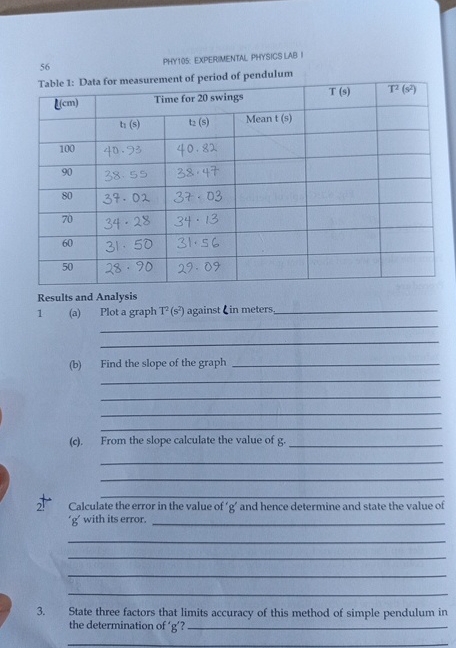 56
PHY105: EXPERIMENTAL PHYSICS LAB I
Table 1: Data for measurement of period of pendulum
l(cm) Time for 20 swings T (s) T² (s²)
t₁ (s) t₂ (s) Mean t (s)
100 40.93 40.82
90 38.55 38.47
80 37.02 37.03
70 34.28 34.13
60 31.50 31.56
50 28.90 29.09
Results and Analysis
1 (a) Plot a graph T² (s²) against l in meters.
(b) Find the slope of the graph
(c). From the slope calculate the value of g.
2. Calculate the error in the value of 'g' and hence determine and state the value of
'g' with its error.
3. State three factors that limits accuracy of this method of simple pendulum in
the determination of 'g'?